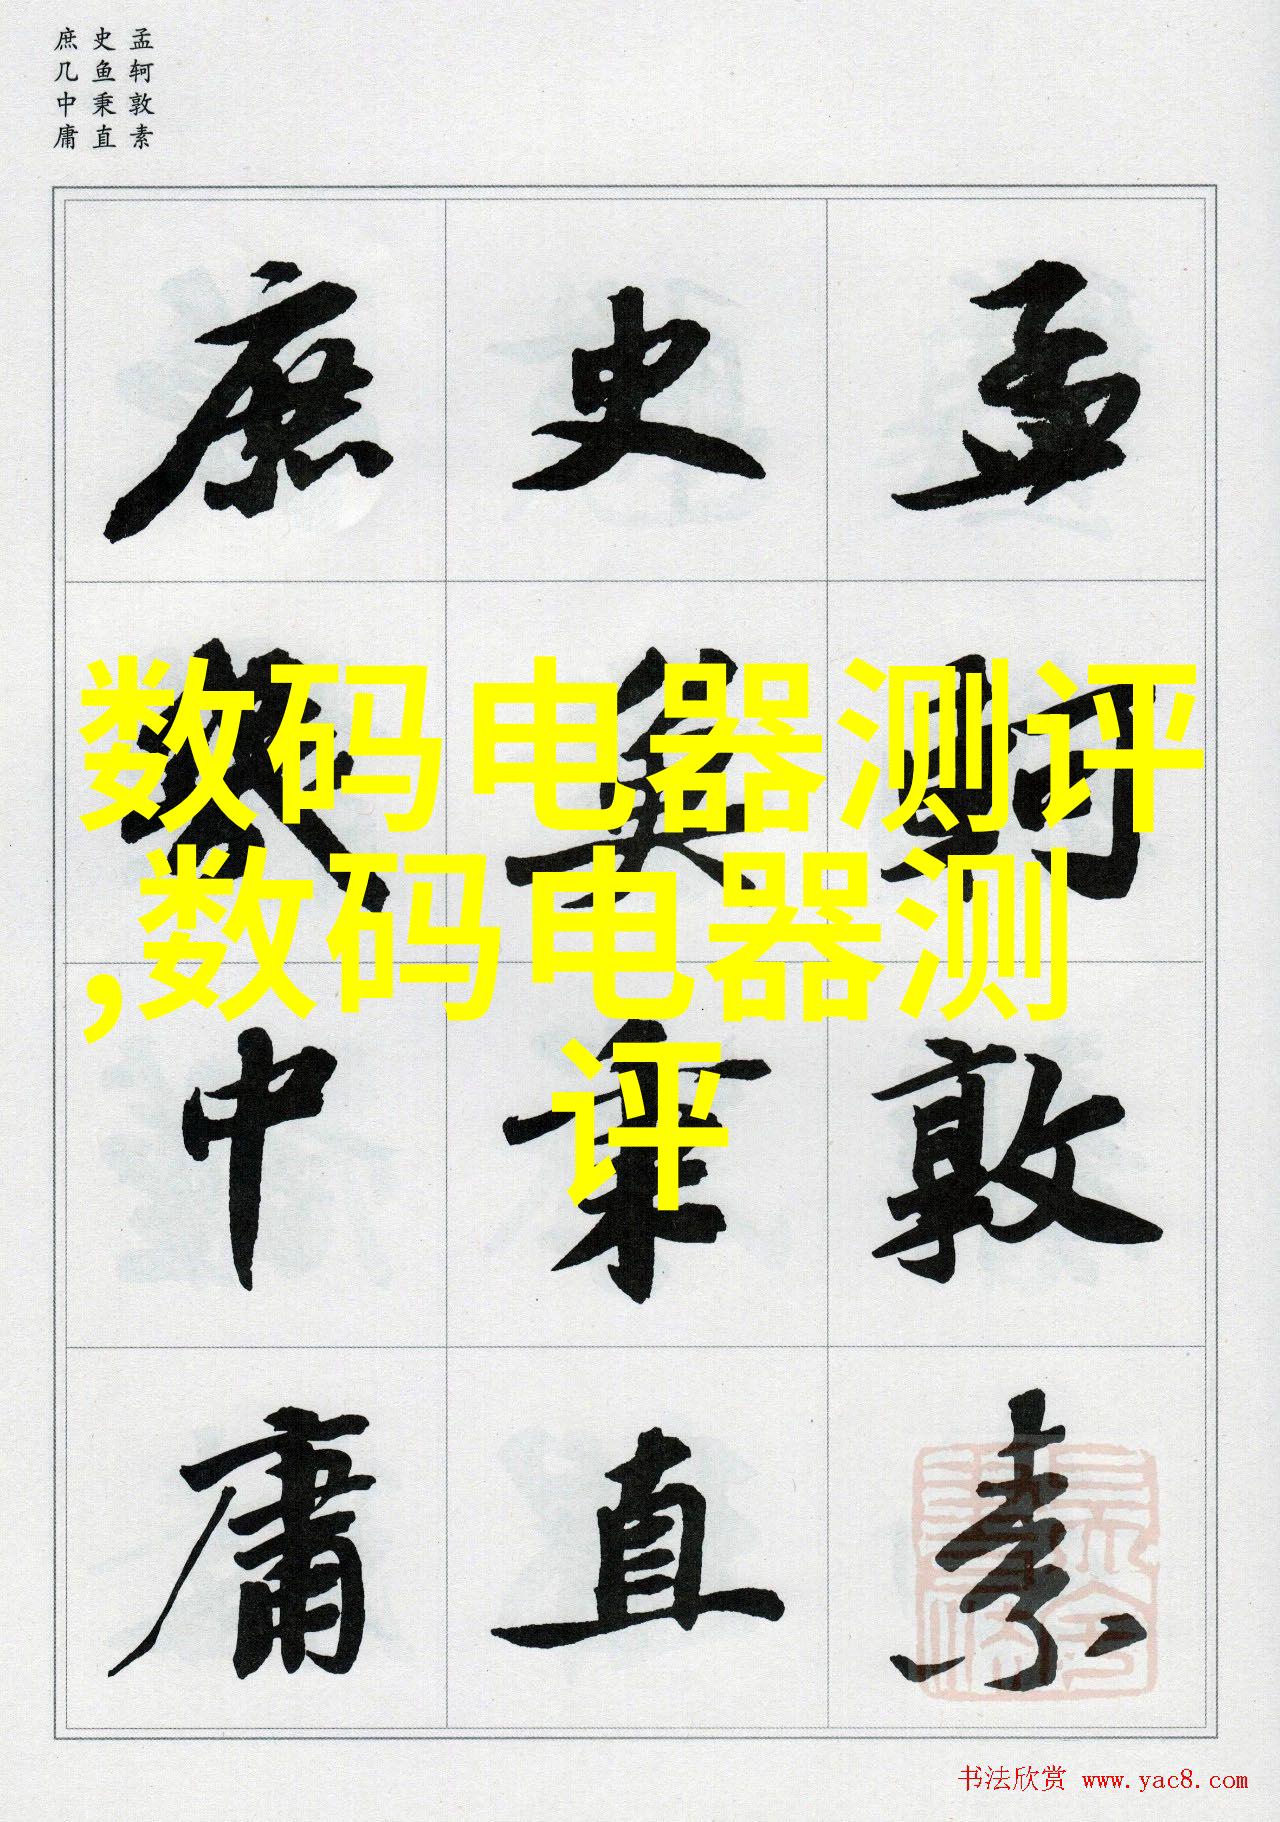 孟轲敦素
史鱼秉直
庶几中庸
孟軻敦素
史魚秉直
庶幾中庸
数码电器测评
,数码电器测
评
书法欣赏 www.yac8.com